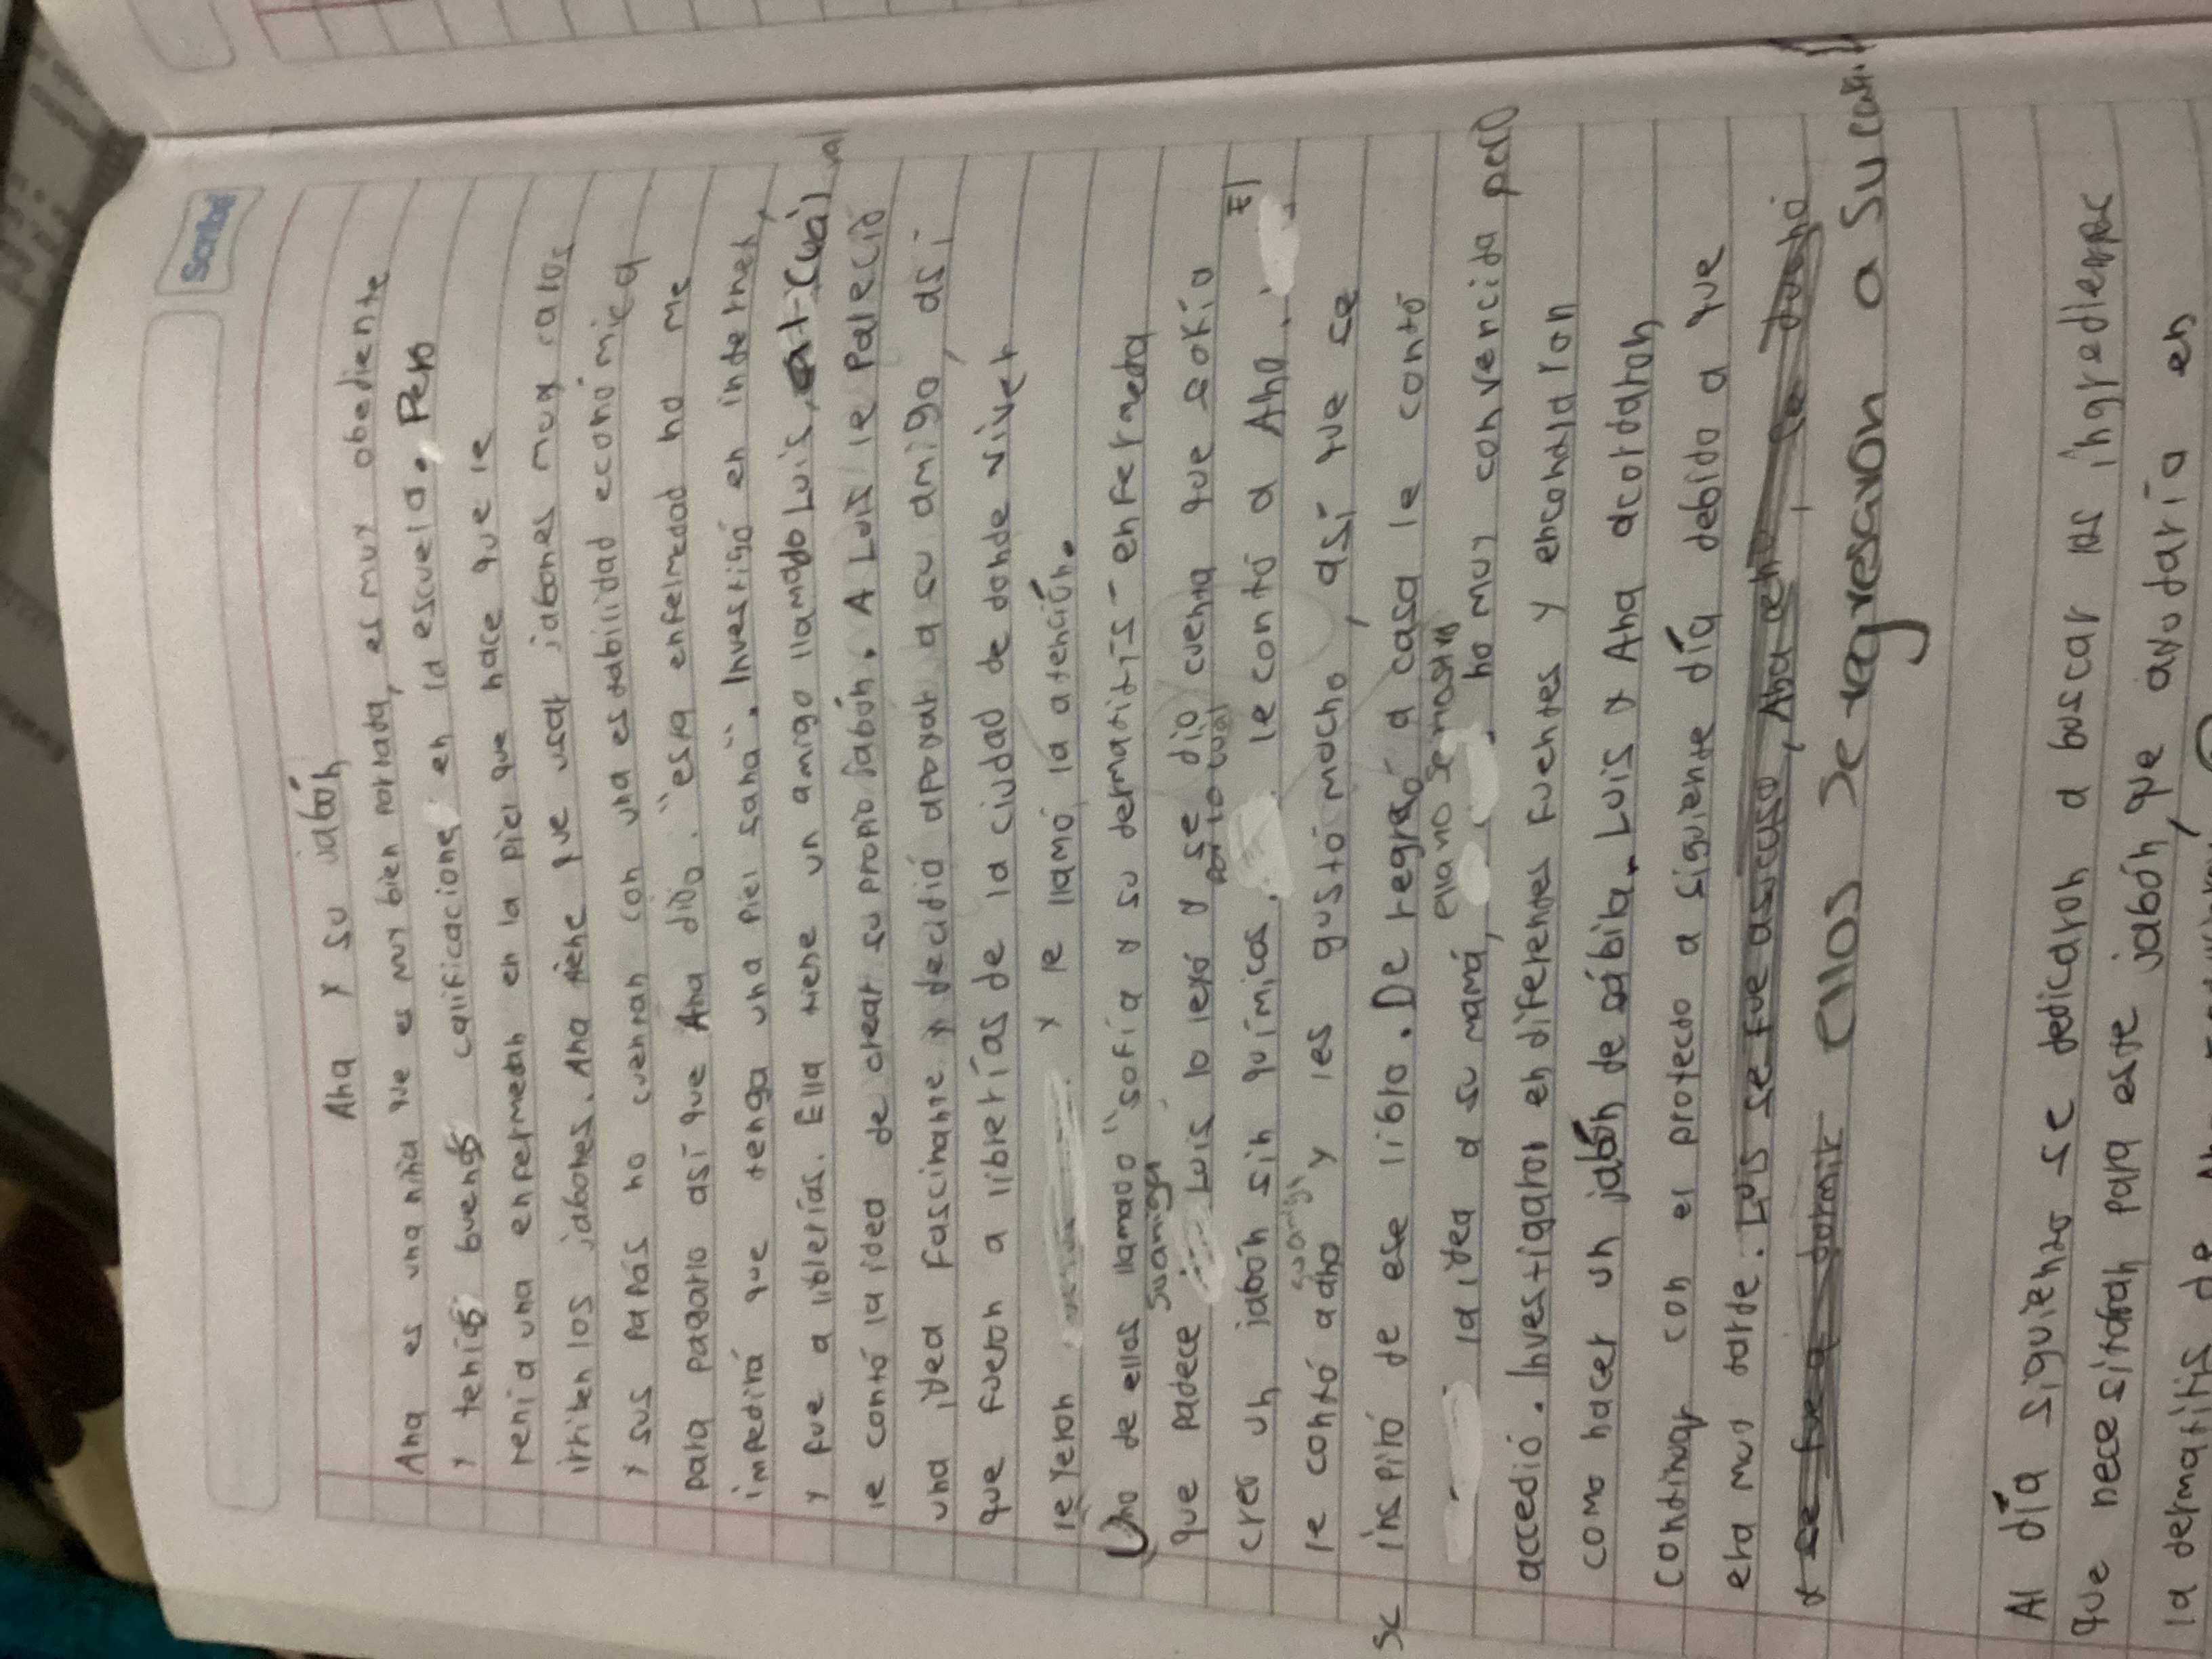 Scribe
Ana y su jabón
Ana es una niña que es muy bien portada, es muy obediente
y tenía buenas calificaciones en la escuela. Pero
tenia una enfermedan en la piel que hace que le
irriten los jabones. Ana tiene que usar jabones muy caros
y sus papás no cuentan con una estabilidad económica
para pagarlo así que Ana dijo. "esta enfermedad no me
impedirá que tenga una piel sana". Investigó en internet,
y fue a librerías. Ella tiene un amigo llamado Luis, al cual
le contó la idea de crear su propio jabón. A Luis le pareció
una idea fascinante y decidió apoyar a su amigo, así
que fueron a librerías de la ciudad de donde viven
leyeron y le llamó la atención.
Uno de ellos llamado "sofía y su dermatitis- enfermeda
que padece su amiga Luis lo leyó y se dio cuenta que sofía
creo un jabón sin químicos. por lo cual le contó a Ana. El
le contó a ana su amiga y les gustó mucho, así que se
se inspiró de ese libro. De regreso a casa le contó
la idea a su mamá, ella no se mostró no muy convencida pero
accedió. Investigaron en diferentes fuentes y encontraron
como hacer un jabón de sábila. Luis y Ana acordaron
continuar con el proyecto a siguiente día debido a que
era muy tarde. Luis se fue a su casa, Ana
y se fue a dormir Ellos se regresaron a su
Al día siguiente se dedicaron a buscar los
que necesitaran para este jabón, que ayudaría en
la dermatitis de